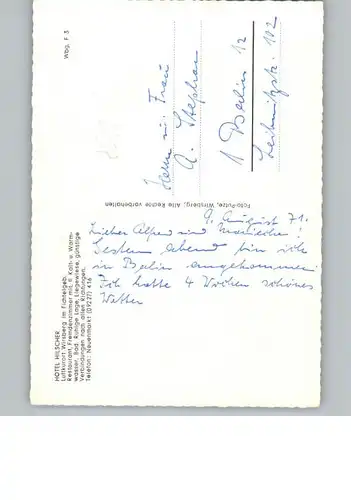 HOTEL HILSCHER
Luftkurort Wirsberg im Fichtelgeb.
Restaurant, Fremdenzimmer mit fl. Kalt- u. Warm-
wasser, Bad. Ruhige Lage, Liegewiese, günstige
Verbindungen nach allen Richtungen.
Telefon: Neuenmarkt (09227) 416
9. August 71.
Lieber Alfred und
Gestern abend bin ich
in Berlin angekommen
Ich hatte 4 Wochen schönes
Wetter
Foto-Putze, Wirsberg, Alle Rechte vorbehalten
Wbg. F 3
Herrn u. Frau
A. Stephan
1 Berlin 12
Leibnizstr. 102